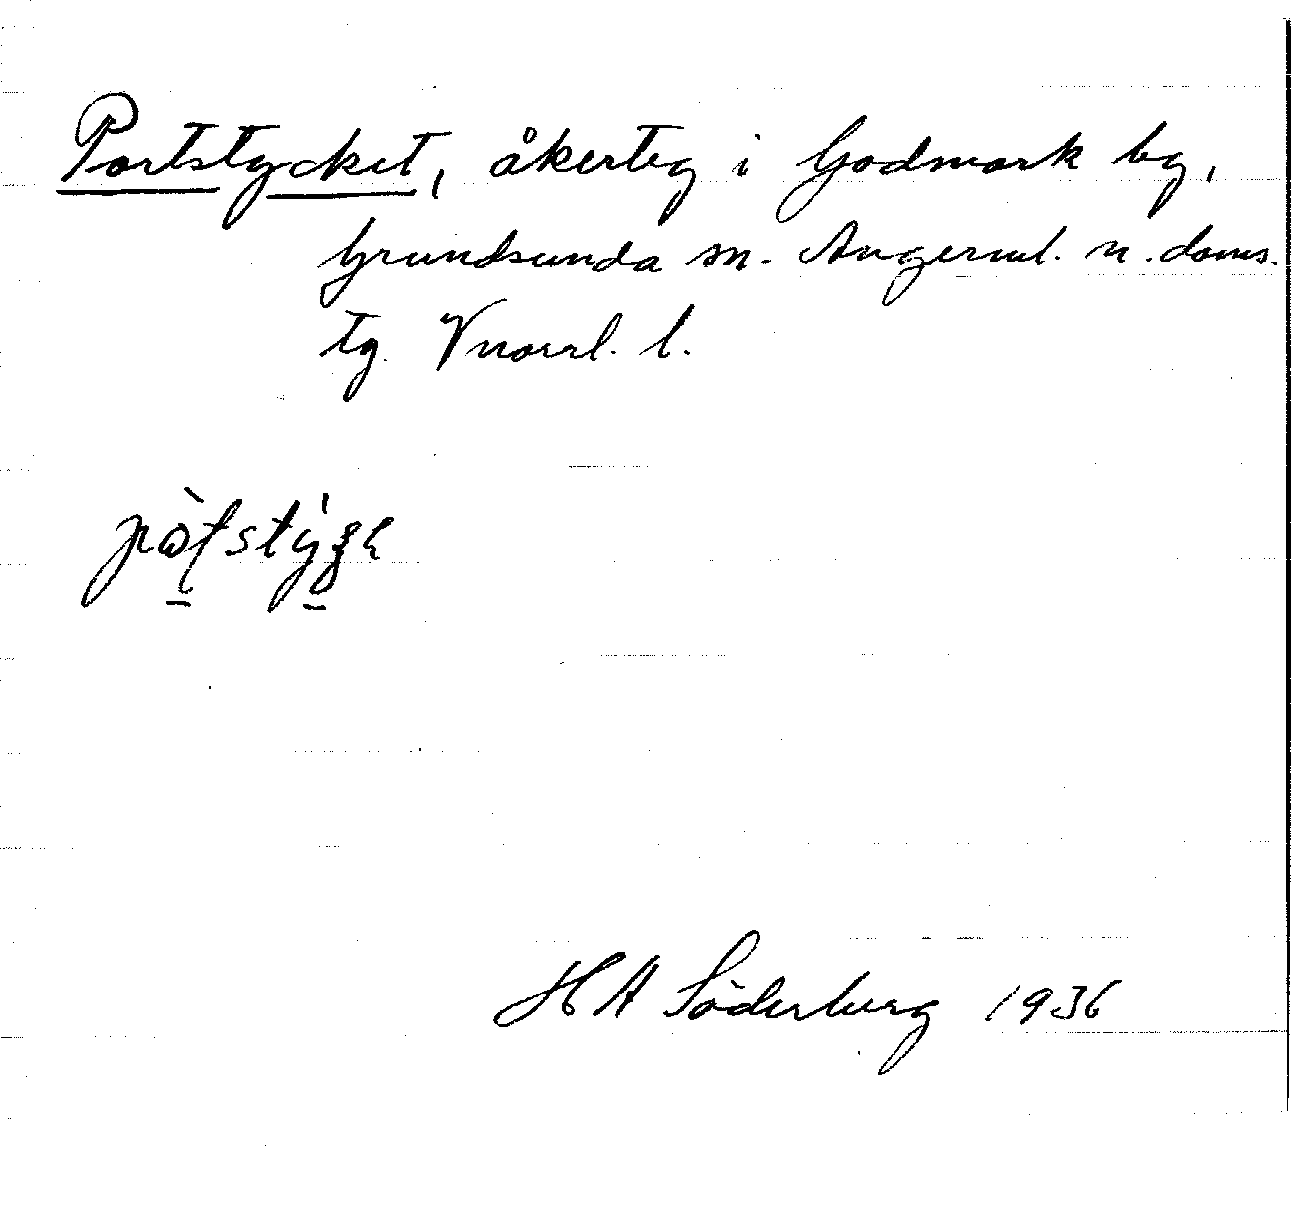 Portstycket, åkerteg i Godmark by,
Grundsunda sn. Ångerml. n. doms.
tg. Vnorrl. l.
HA Söderberg 1936